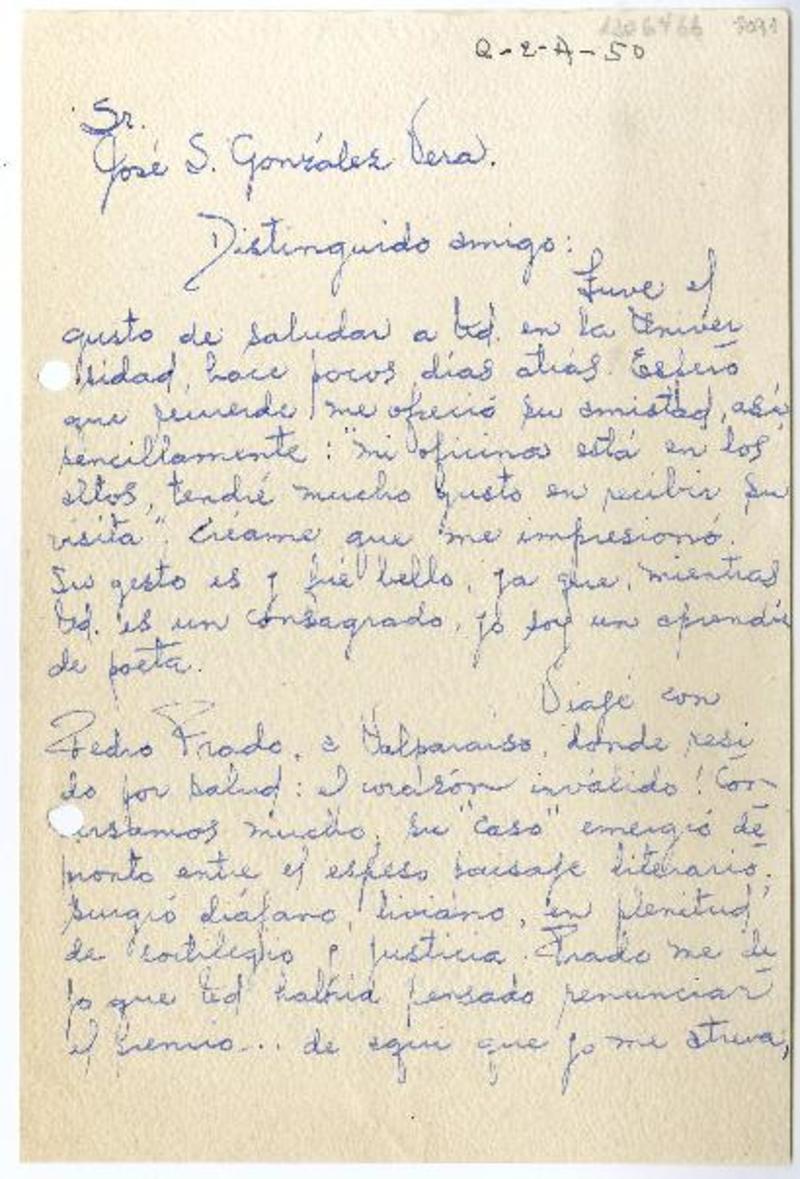 Q-2-A-50
Sr.
José S. González Vera.
Distinguido amigo:
Tuve el
gusto de saludar a Ud. en la Univer
sidad, hace pocos días atrás. Espero
que recuerde me ofreció su amistad, así,
sencillamente: "mi oficina está en los
altos, tendré mucho gusto en recibir su
visita". Créame que me impresionó.
Su gesto es y fué bello, ya que, mientras
Ud. es un consagrado, yo soy un aprendiz
de poeta.
Viajé con
Pedro Prado, a Valparaíso, donde resi
do por salud: el corazón inválido! Con
versamos mucho, su "caso" emergió de
pronto entre el espeso paisaje literario;
surgió diáfano, liviano, en plenitud
de sortilegio y justicia. Prado me di
jo que Ud habría pensado renunciar
el premio... de aquí que yo me atreva,